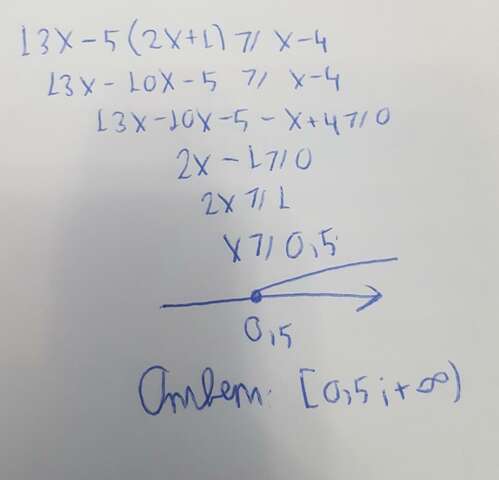 13x-5(2x+1)⩾x-4
13x-10x-5⩾x-4
13x-10x-5-x+4⩾0
2x-1⩾0
2x⩾1
x⩾0,5
0,5
Ответ: [0,5;+∞)